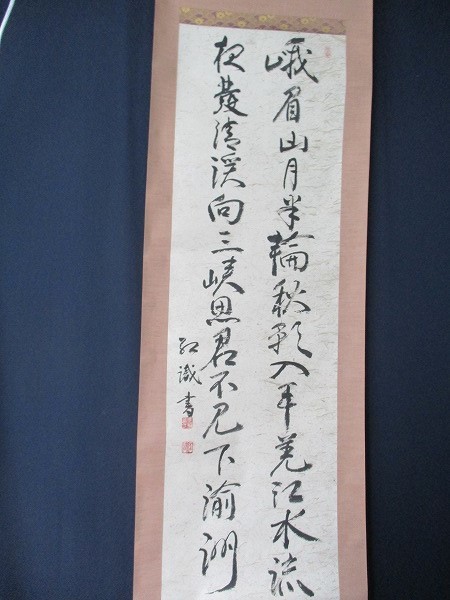 峨眉山月半輪秋影入平羌江水流
夜發清溪向三峽思君不見下渝州
識書